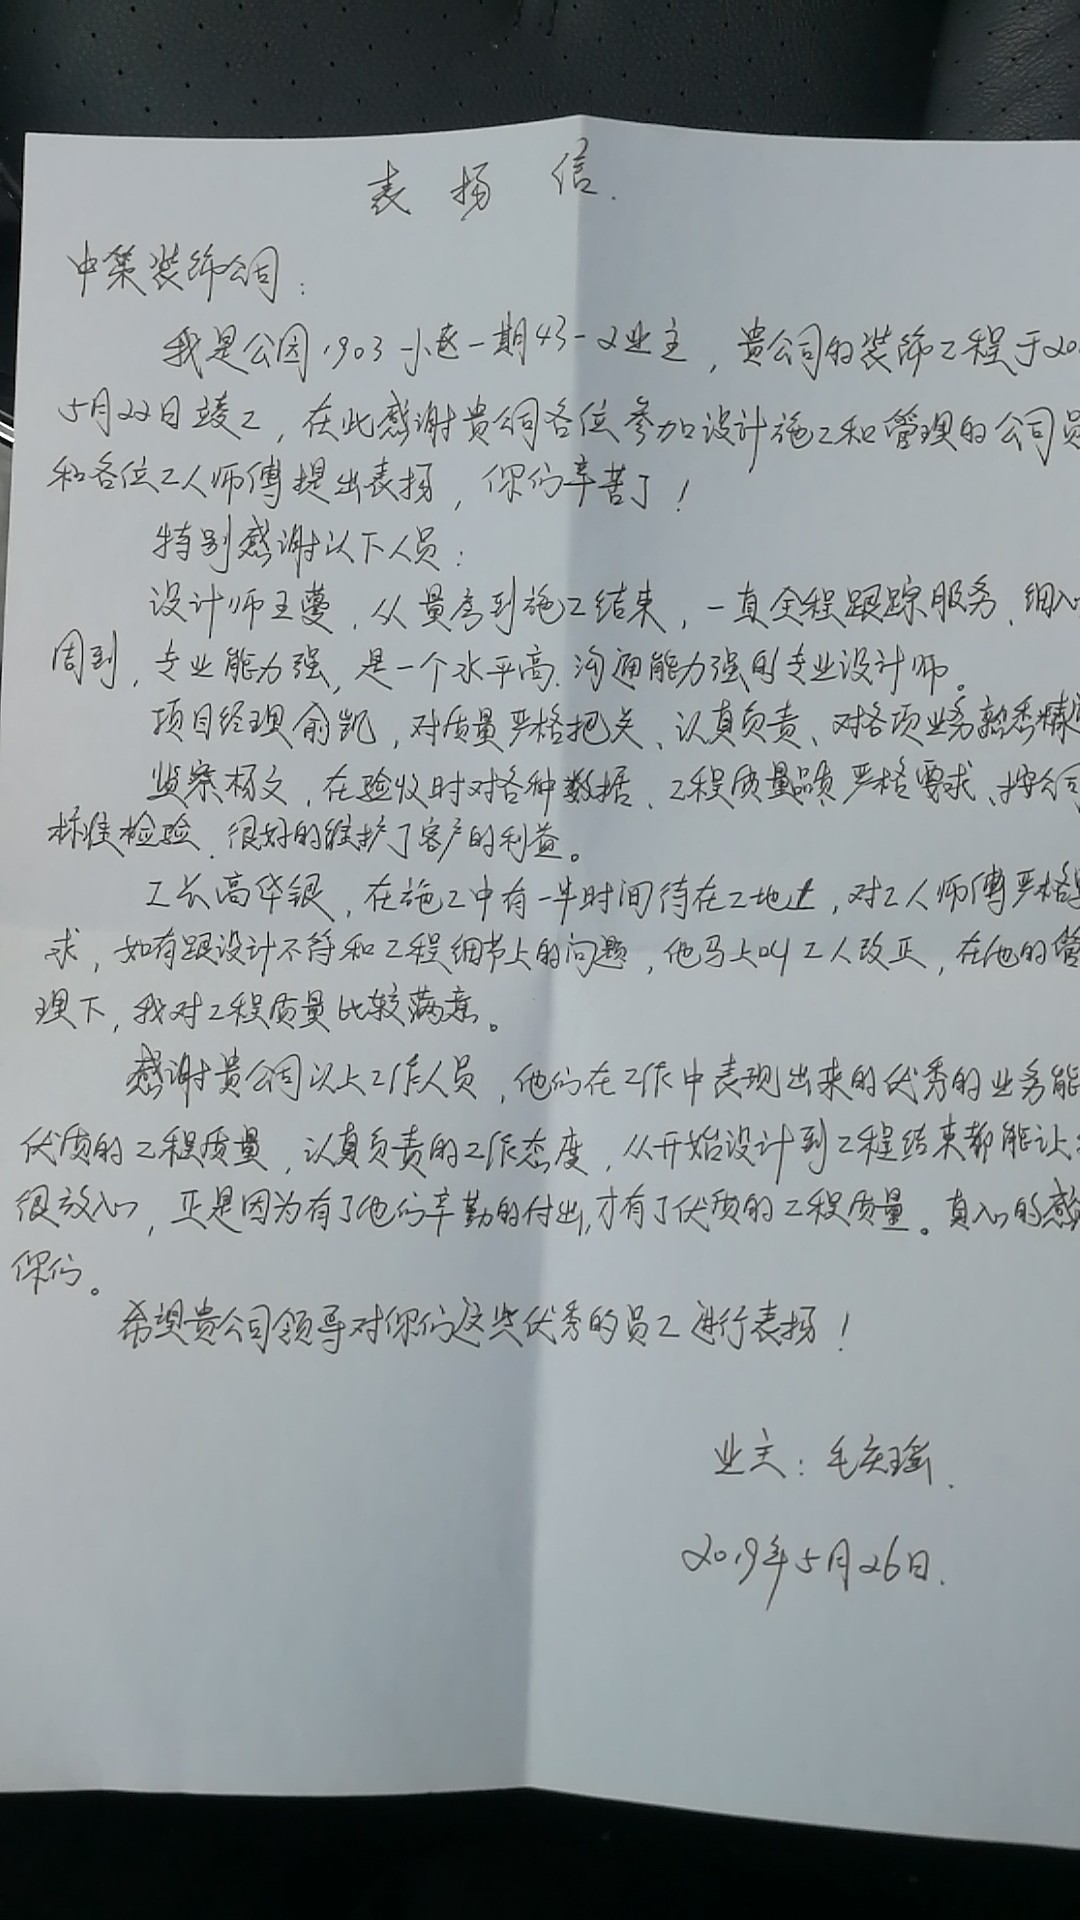 表扬信.
中集装饰公司：
我是公园1903小区一期43-2业主，贵公司的装饰工程于20
5月22日竣工，在此感谢贵公司各位参加设计施工和管理的公司员
和各位工人师傅提出表扬，你们辛苦了！
特别感谢以下人员：
设计师王蔓，从量房到施工结束，一直全程跟踪服务、细心
周到，专业能力强，是一个水平高、沟通能力强的专业设计师。
项目经理俞凯，对质量严格把关、认真负责、对各项业务熟悉精
监察杨文，在验收时对各种数据、工程质量品质严格要求、按公司
标准检验、很好的维护了客户的利益。
工长高华银，在施工中有一半时间待在工地上，对工人师傅严格
求，如有跟设计不符和工程细节上的问题，他马上叫工人改正，在他的管
理下，我对工程质量比较满意。
感谢贵公司以上工作人员，他们在工作中表现出来的优秀的业务能
优质的工程质量，认真负责的工作态度，从开始设计到工程结束都能让
很放心，正是因为有了他们辛勤的付出，才有了优质的工程质量。真心的感
你们。
希望贵公司领导对你们这些优秀的员工进行表扬！
业主：毛庆瑶.
2019年5月26日.